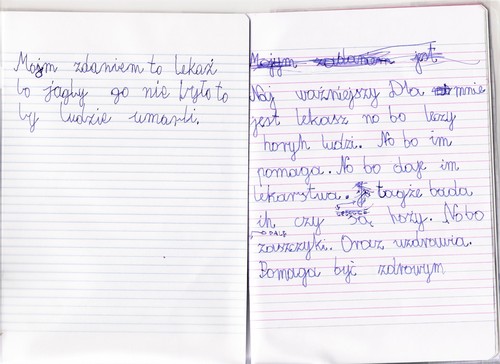 Mojm zdaniem to lekaż
bo jagby go nie było to
by ludzie umarli.
Mojym zadaniem jest
Naj ważniejszy Dla mnie
jest lekasz no bo leczy
horyh ludzi. No bo im
pomaga. No bo daje im
lekarstwa. tagże bada
ih czy
są hoży. No bo
DAJE
zaszczyki. Oraz uzdrawia.
Pomaga być zdrowym